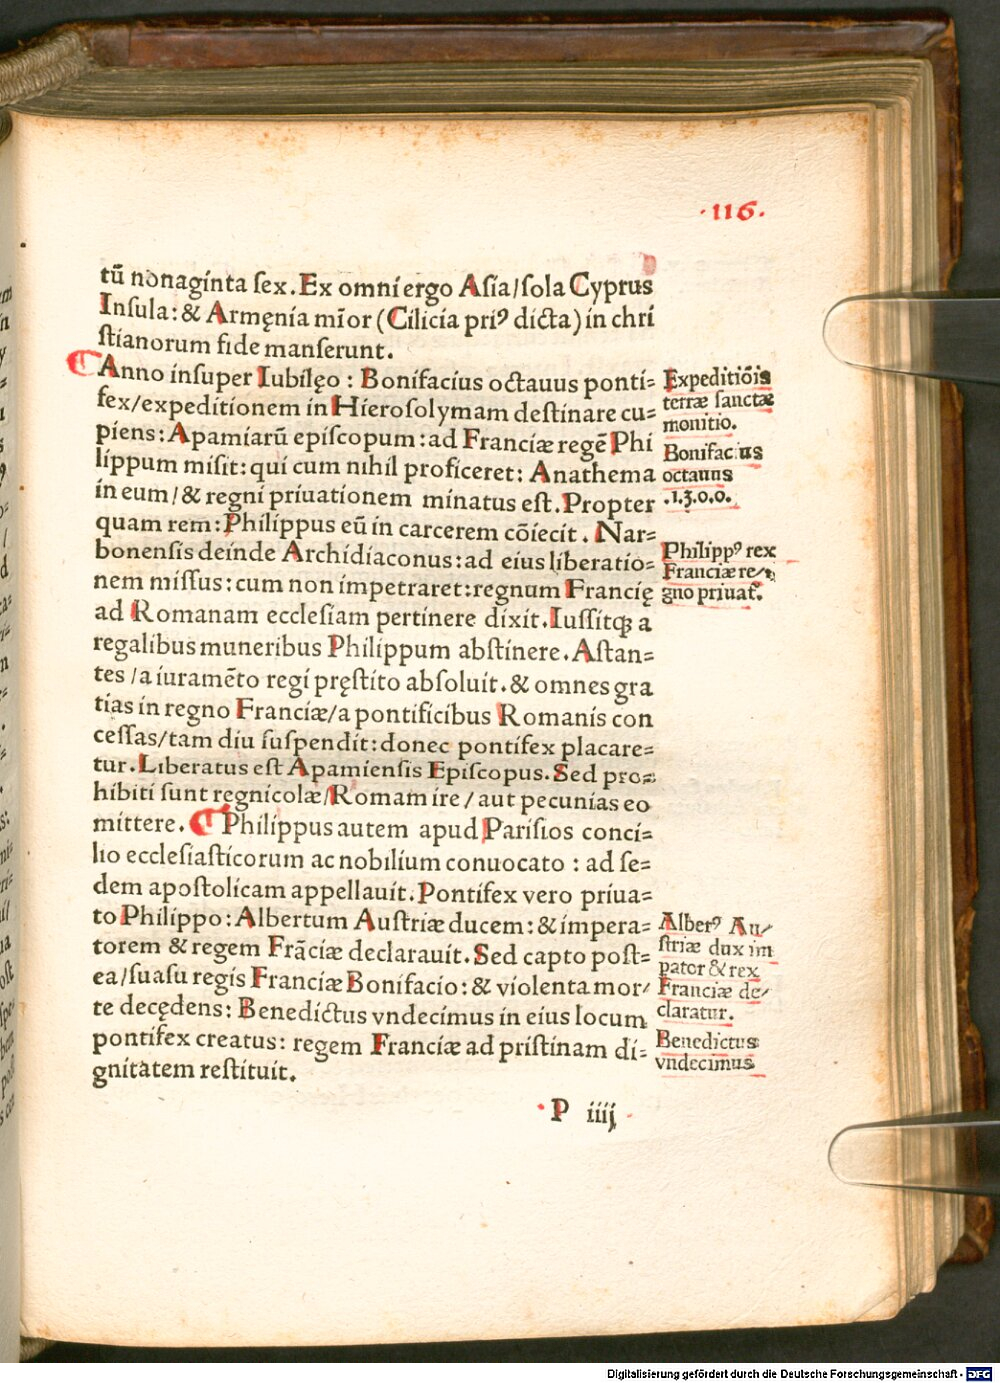 ·116·
tū nonaginta sex. Ex omni ergo Asia/sola Cyprus
Insula: & Armęnia mīor (Cilicia priꝰ dicta) in chri
stianorum fide manserunt.
¶ Anno insuper Iubilęo : Bonifacius octauus ponti=
fex/expeditionem in Hierosolymam destinare cu=
piens: Apamiarū episcopum: ad Franciæ regē Phi
lippum misit: qui cum nihil proficeret: Anathema
in eum/& regni priuationem minatus est. Propter
quam rem: Philippus eū in carcerem cōiecit. Nar=
bonensis deinde Archidiaconus: ad eius liberatio=
nem missus: cum non impetraret: regnum Francię
ad Romanam ecclesiam pertinere dixit. Iussitqꝫ a
regalibus muneribus Philippum abstinere. Astan=
tes /a iuramēto regi pręstito absoluit. & omnes gra
tias in regno Franciæ/a pontificibus Romanis con
cessas/tam diu suspendit: donec pontifex placare=
tur. Liberatus est Apamiensis Episcopus. Sed pro=
hibiti sunt regnicolæ/Romam ire/aut pecunias eo
mittere. ¶ Philippus autem apud Parisios conci=
lio ecclesiasticorum ac nobilium conuocato : ad se=
dem apostolicam appellauit. Pontifex vero priua=
to Philippo: Albertum Austriæ ducem: & impera=
torem & regem Frāciæ declarauit. Sed capto post=
ea/suasu regis Franciæ Bonifacio: & violenta mor/
te decędens: Benedictus vndecimus in eius locum
pontifex creatus: regem Franciæ ad pristinam di=
gnitatem restituit.
Expeditiōis
terræ sanctæ
monitio.
Bonifacius
octauus
.1300.
Philippꝰ rex
Franciæ re/
gno priuat̄.
Alberꝰ Au/
striæ dux im
pator & rex
Franciæ de/
claratur.
Benedictus
vndecimus
·P iiij·
Digitalisierung gefördert durch die Deutsche Forschungsgemeinschaft - DFG